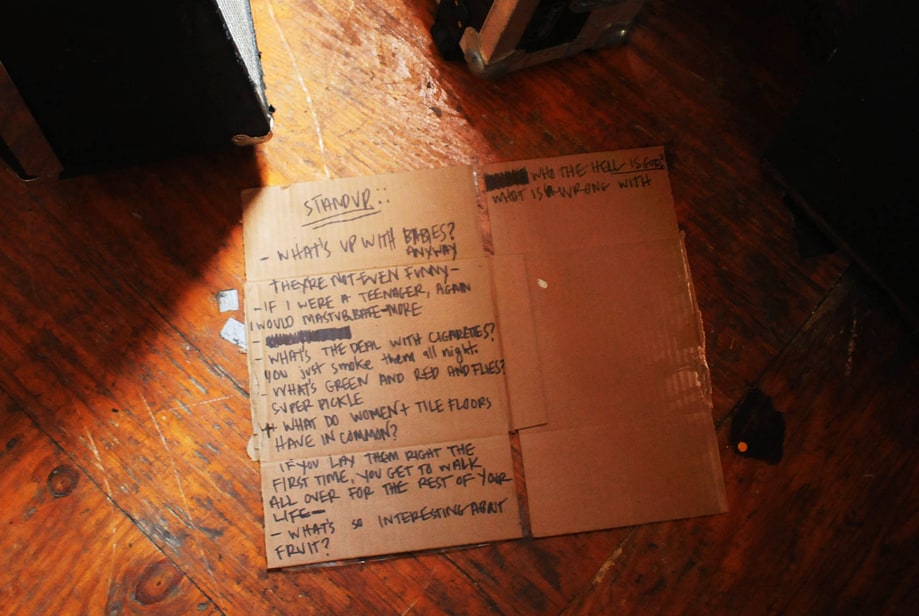 STANDUP::
- WHAT'S UP WITH BABIES?
ANYWAY
THEY'RE NOT EVEN FUNNY-
- IF I WERE A TEENAGER, AGAIN
I WOULD MASTURBATE MORE
-
- WHAT'S THE DEAL WITH CIGARETTES?
you just smoke them all night.
- WHAT'S GREEN AND RED AND FLIES?
SUPER PICKLE
+ WHAT DO WOMEN + TILE FLOORS
HAVE IN COMMON?
IF YOU LAY THEM RIGHT THE
FIRST TIME, YOU GET TO WALK
ALL OVER FOR THE REST OF YOUR
LIFE-
- WHAT'S SO INTERESTING ABOUT
FRUIT?
WHO THE HELL IS GOD?
WHAT IS WRONG WITH